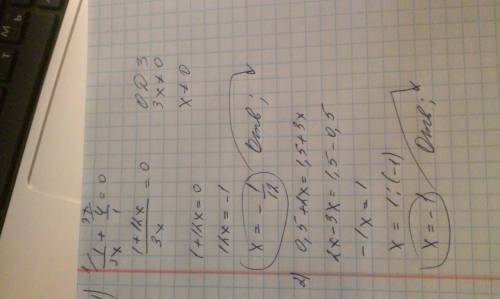 1) 1/3x + 4/1 = 0
ОДЗ
(1+12x)/3x = 0
3x ≠ 0
x ≠ 0
1+12x=0
12x = -1
x = - 1/12
Отв;
2) 0,5+2x = 1,5+3x
2x-3x = 1,5-0,5
-1x = 1
x = 1:(-1)
x = -1
Отв;